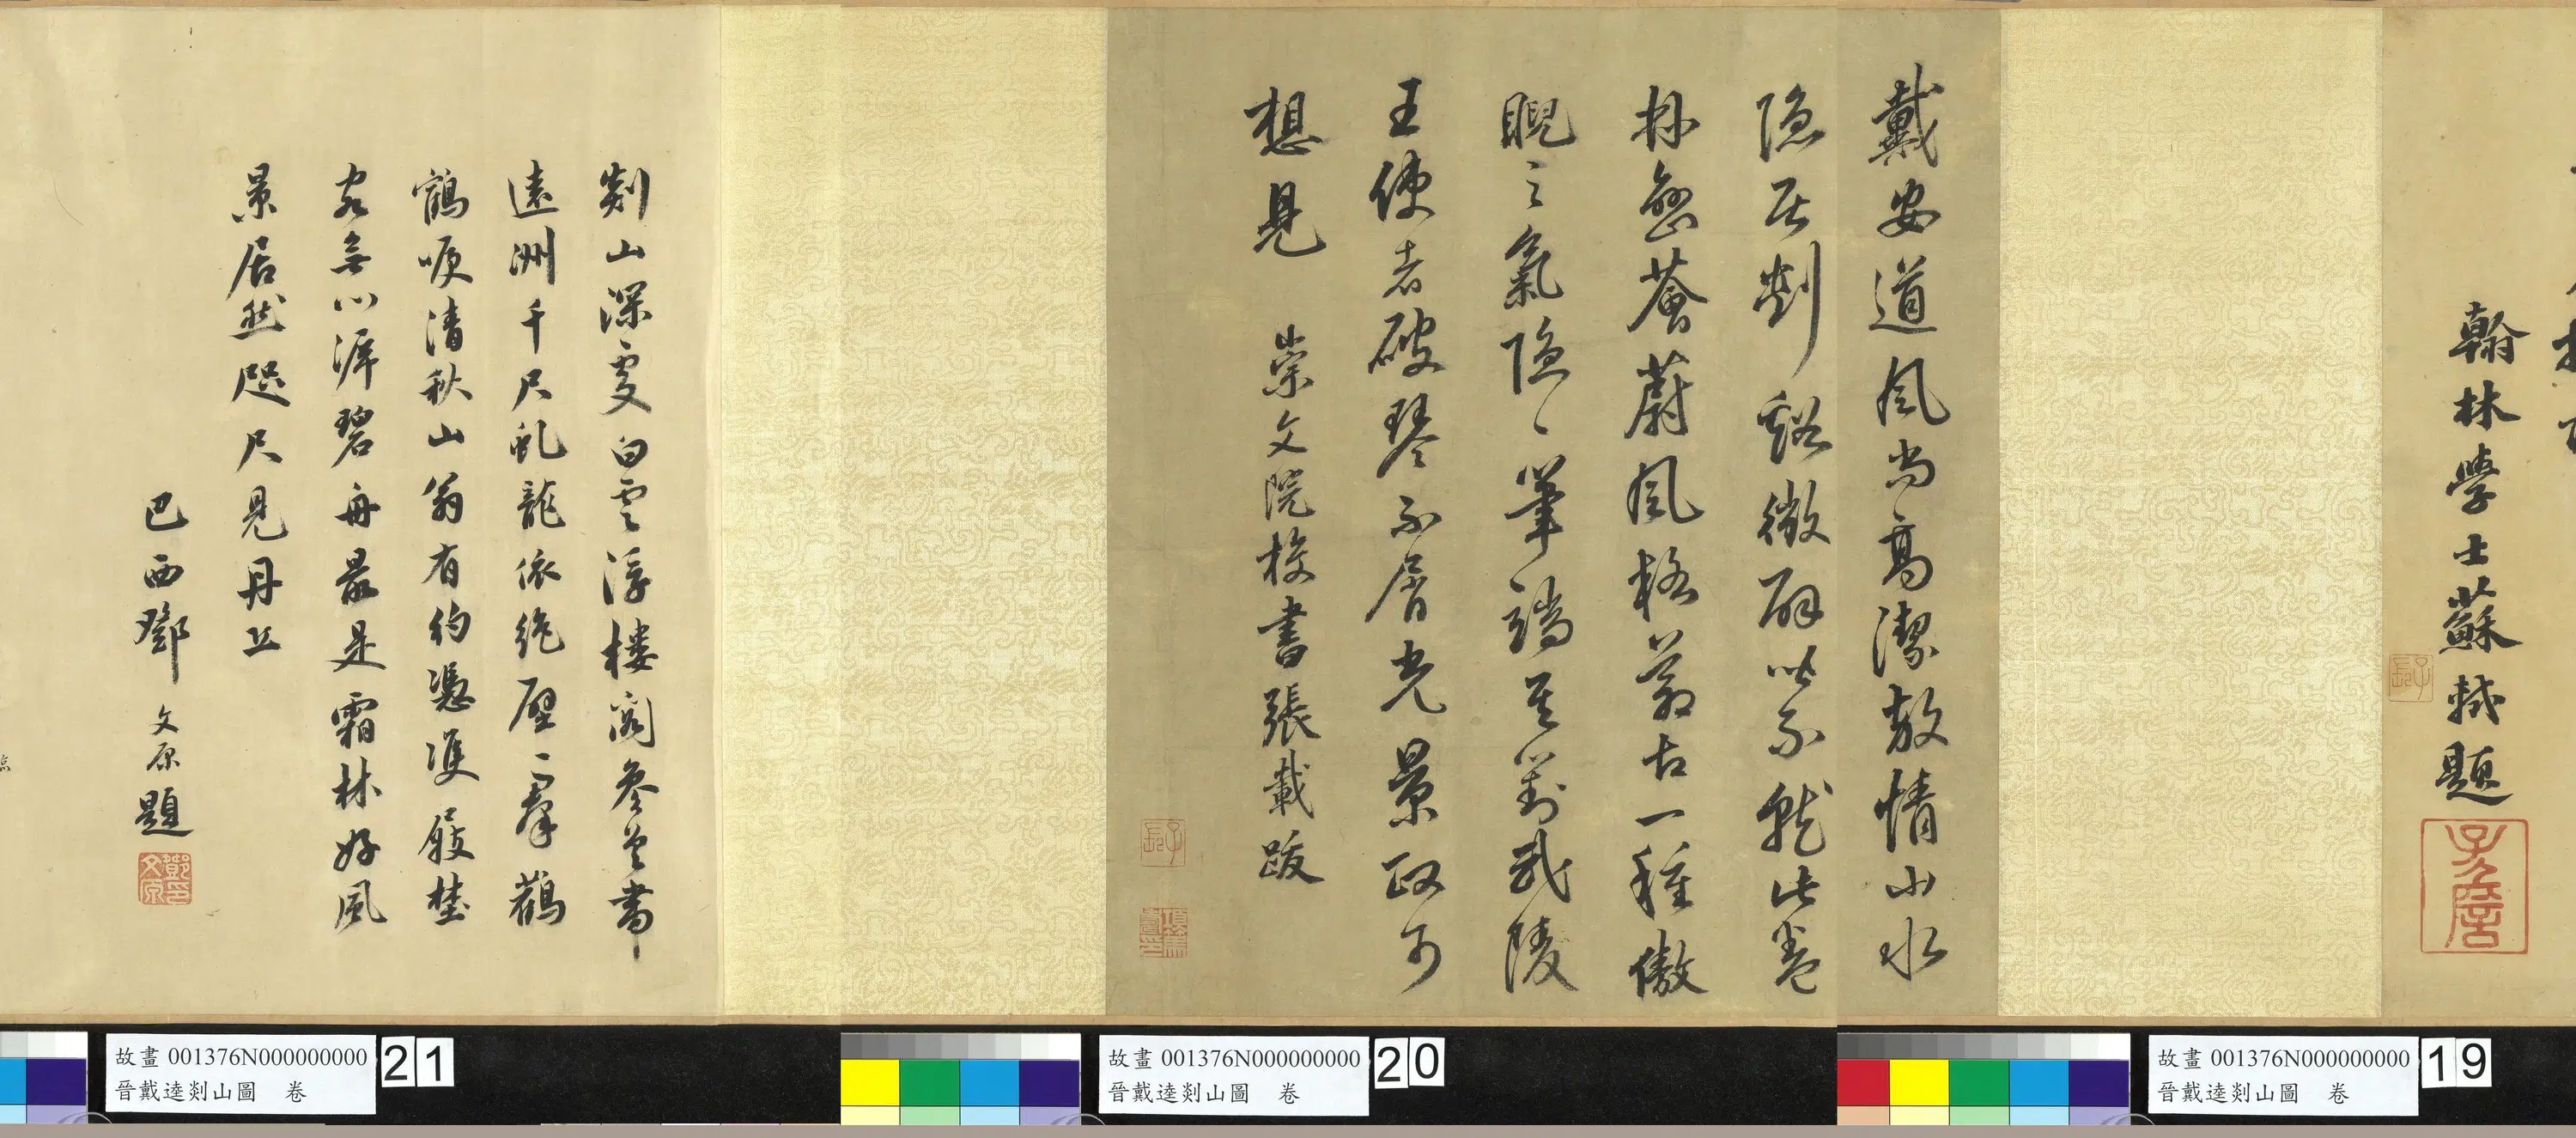 翰林學士蘇軾題
子長
子瞻
戴安道風尚高潔敖情山水
隐居剡谿徵辟皆不就此卷
林巒薈蔚風格蒼古一種傲
睨之氣隐、筆端至對武陵
王使者破琴不屑光景政可
想見 崇文院校書張載跋
子長
剡山深處白雲浮樓閣參差書
遠洲千尺虬龍依絶壁一羣鸛
鶴唳清秋山翁有約憑雙屐樵
客無心滯碧舟最是霜林好風
景居然咫尺見丹丘
巴西鄧文原題
鄧文原印
故畫 001376N000000000
晉戴逵剡山圖 卷
19
故畫 001376N000000000
晉戴逵剡山圖 卷
20
故畫 001376N000000000
晉戴逵剡山圖 卷
21